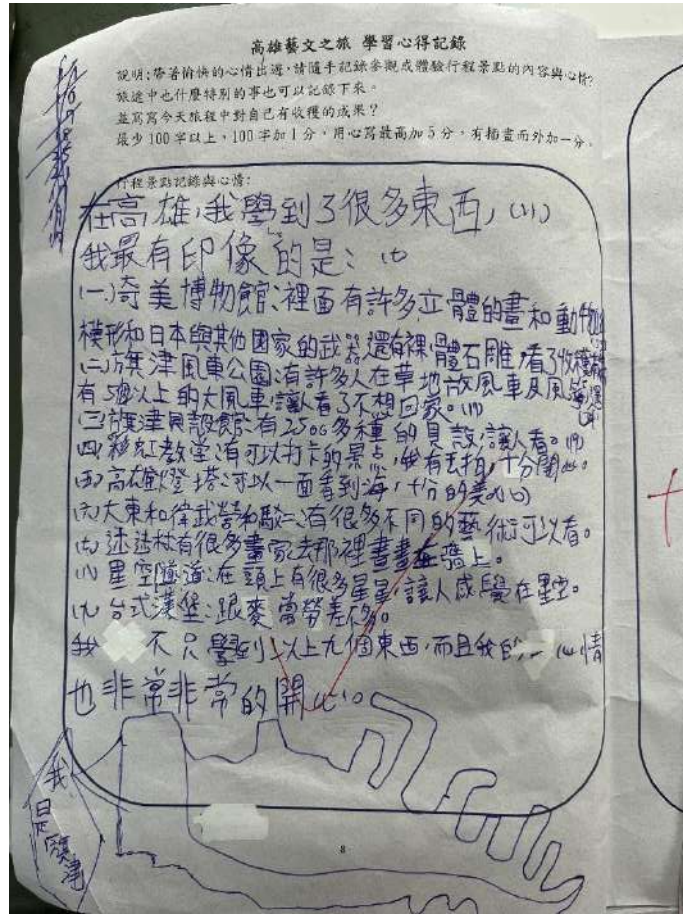 高雄藝文之旅 學習心得記錄
說明:帶著愉快的心情出遊,請隨手記錄參觀或體驗行程景點的內容與心情?
旅途中也什麼特別的事也可以記錄下來。
並寫寫今天旅程中對自己有收獲的成果?
最少100字以上,100字加1分,用心寫最高加5分,有插畫而外加一分。
行程景點記錄與心情:
在高雄,我學到了很多東西,
我最有印像的是:
(一)奇美博物館:裡面有許多立體的畫和動物
模形和日本與其他國家的武器還有裸體石雕,看了收穫
(二)旗津風車公園:有許多人在草地放風車及風箏還
有5個以上的大風車讓人看了不想回家。
(三)旗津貝殼館:有2500多種的貝殼,讓人看。
(四)彩虹教堂:有可以打卡的景点,我有去拍,十分開心。
(五)高雄燈塔:可以一面看到海,十分的美
(六)大東和衛武營和駁二:有很多不同的藝術可以看。
(七)迷迷村有很多畫家去那裡畫畫在牆上。
(八)星空隧道:在頭上有很多星星,讓人感覺在星空。
(九)台式漢堡:跟麥當勞差不多。
我 不只學到以上九個東西,而且我的 心情
也非常非常的開心。
我是旗津
8